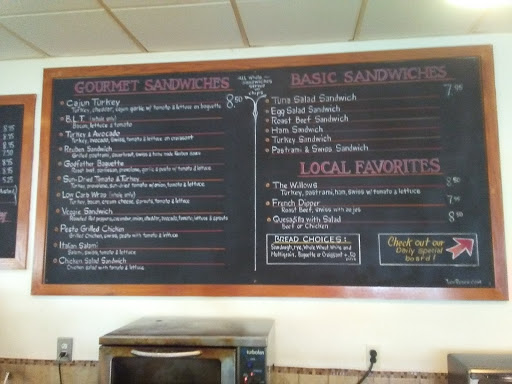 GOURMET SANDWICHES
All whole sandwiches served with chips
8.50
Cajun Turkey
Turkey, cheddar, cajun garlic w/ tomato & lettuce on baguette
B.L.T. (whole only)
Bacon, lettuce & tomato
Turkey & Avocado
Turkey, avocado, swiss, tomato & lettuce on croissant
Reuben Sandwich
Grilled pastrami, sauerkraut, swiss & thousand
Godfather Baguette
Roast beef, parmesan, provolone, garlic & pesto w/ tomato & lettuce
Sun-Dried Tomato & Turkey
Turkey, provolone, sun-dried tomato w/ onion, tomato & lettuce
Low Carb Wrap (whole only)
Turkey, bacon, cream cheese, sprouts, tomato & lettuce
Veggie Sandwich
Roasted Red peppers, cucumber, onion, cheddar, avocado, tomato, lettuce & sprouts
Pesto Grilled Chicken
Grilled Chicken, swiss, pesto with tomato & lettuce
Italian Salami
Salami, swiss, tomato & lettuce
Chicken Salad Sandwich
Chicken salad with tomato & lettuce
BASIC SANDWICHES
Tuna Salad Sandwich
Egg Salad Sandwich
Roast Beef Sandwich
Ham Sandwich
Turkey Sandwich
Pastrami & Swiss Sandwich
LOCAL FAVORITES
The Willows
Turkey, pastrami, ham, swiss w/ tomato & lettuce
French Dipper
Roast Beef, swiss with au jus
Quesadilla with Salad
Beef or Chicken
BREAD CHOICES:
Sourdough, rye, Whole Wheat, White and
Multigrain, Baguette or Croissant + .50
Check out our
Daily Special
board!